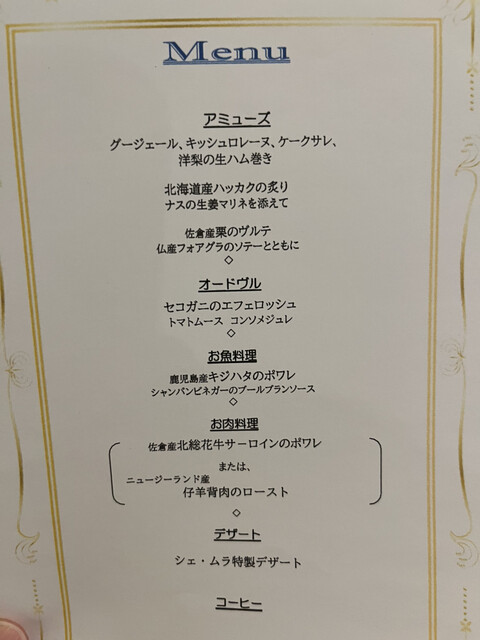 Menu
アミューズ
グージェール、キッシュロレーヌ、ケークサレ、
洋梨の生ハム巻き
北海道産ハッカクの炙り
ナスの生姜マリネを添えて
佐倉産栗のヴルテ
仏産フォアグラのソテーとともに
◇
オードヴル
セコガニのエフェロッシュ
トマトムース コンソメジュレ
◇
お魚料理
鹿児島産キジハタのポワレ
シャンパンビネガーのブールブランソース
◇
お肉料理
佐倉産北総花牛サーロインのポワレ
または、
ニュージーランド産
仔羊背肉のロースト
◇
デザート
シェ・ムラ特製デザート
コーヒー